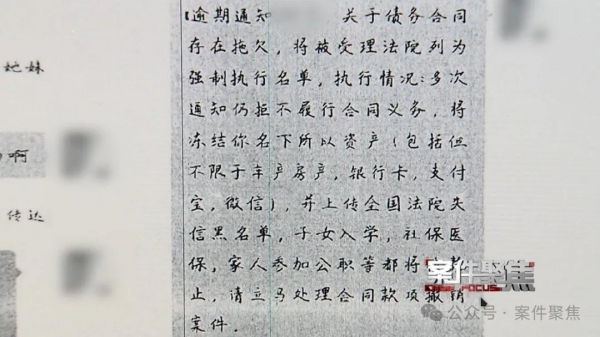 【逾期通知 关于债务合同
存在拖欠，将被受理法院列为
强制执行名单，执行情况:多次
通知仍拒不履行合同义务，将
冻结你名下所以资产（包括但
不限于车产房产，银行卡，支付
宝，微信），并上传全国法院失
信黑名单，子女入学，社保医
保，家人参加公职等都将
止，请立马处理合同款项撤销
案件.
她妹
啊
传达
案件聚焦
FOCUS
公众号·案件聚焦